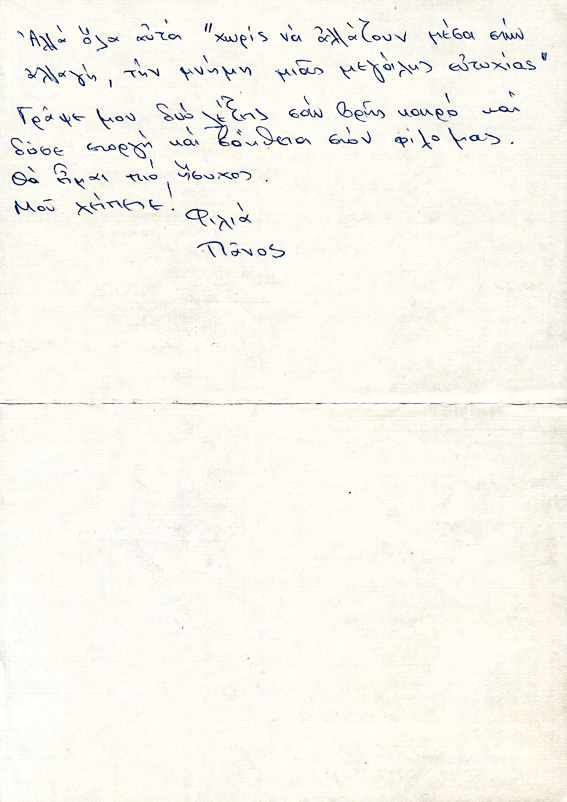 Ἀλλά ὅλα αὐτά "χωρίς νά ἀλλάζουν μέσα στήν
ἀλλαγή, τήν μνήμη μιᾶς μεγάλης εὐτυχίας"
Γράψε μου δυό λέξεις σάν βρῆς καιρό καί
δῶσε στοργή καί βοήθεια στόν φίλο μας.
Θά εἶμαι πιό ἥσυχος.
Μοῦ λείπετε!
Φιλιά
Πάνος